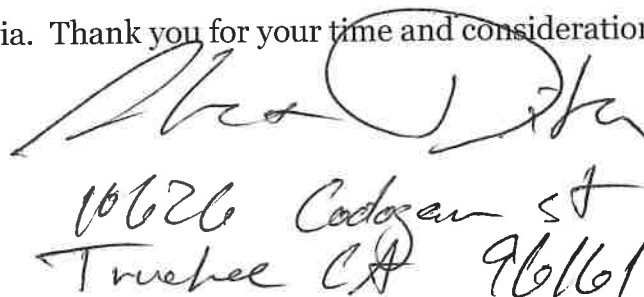 ia. Thank you for your time and consideration
Alex
10626 st
Truckee CA 96161